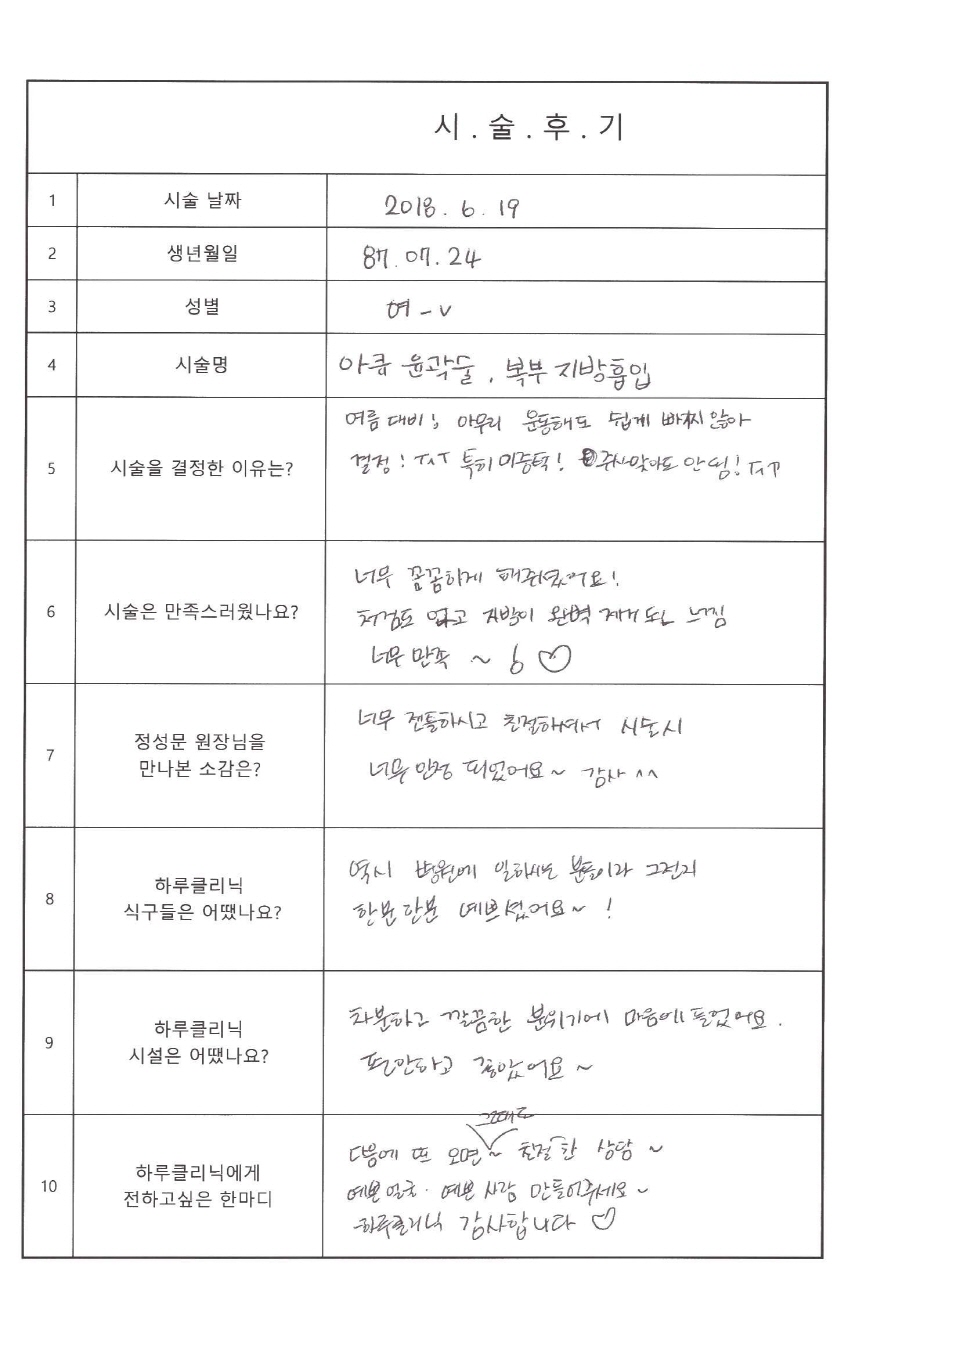 시 . 술 . 후 . 기
1 시술 날짜 2018. 6. 19
2 생년월일 87. 07. 24
3 성별 여 - v
4 시술명 아큐 윤곽술, 복부 지방흡입
5 시술을 결정한 이유는?
여름 대비! 아무리 운동해도 쉽게 빠찌 않아
결정! ㅜㅅㅜ 특히 이중턱! 주사맞아도 안 됨! ㅜㅅㅜ
6 시술은 만족스러웠나요?
너무 꼼꼼하게 해주셨어요!
지방이 완벽 제거 되는 느낌
너무 만족 ~ ! ♡
7 정성문 원장님을
만나본 소감은?
너무 젠틀하시고 친절하셔서 시술시
너무 안정 되었어요~ 감사 ^^
8 하루클리닉
식구들은 어땠나요?
역시 병원에 일하시는 분들이라 그런지
한분 한분 예쁘셨어요~ !
9 하루클리닉
시설은 어땠나요?
차분하고 깔끔한 분위기에 마음에 들었어요.
편안하고 좋았어요 ~
10 하루클리닉에게
전하고싶은 한마디
그때도
다음에 또 오면 ~ 친절한 상담 ~
예쁜 얼굴. 예쁜 사람 만들어주세요~
하루클리닉 감사합니다 ♡